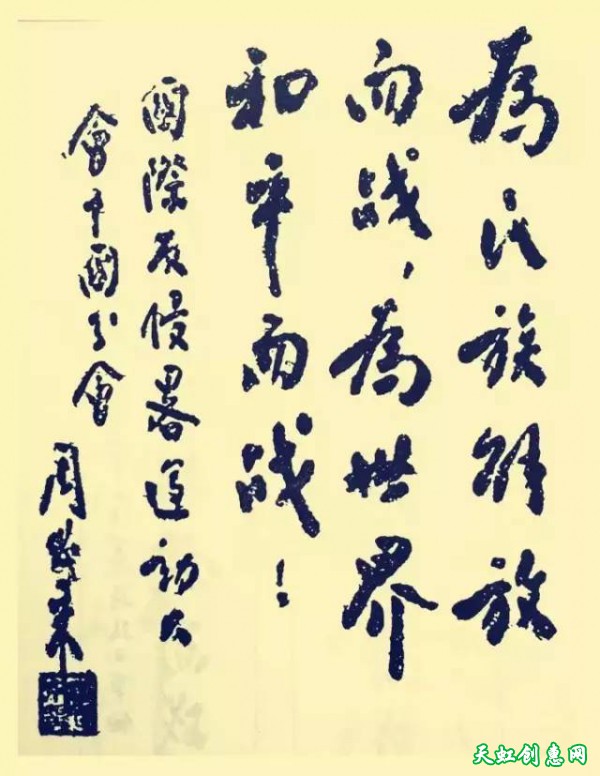 為民族解放
而战，為世界
和平而战！
國際反侵畧運動大
會中國分會
周恩來
天虹创惠网